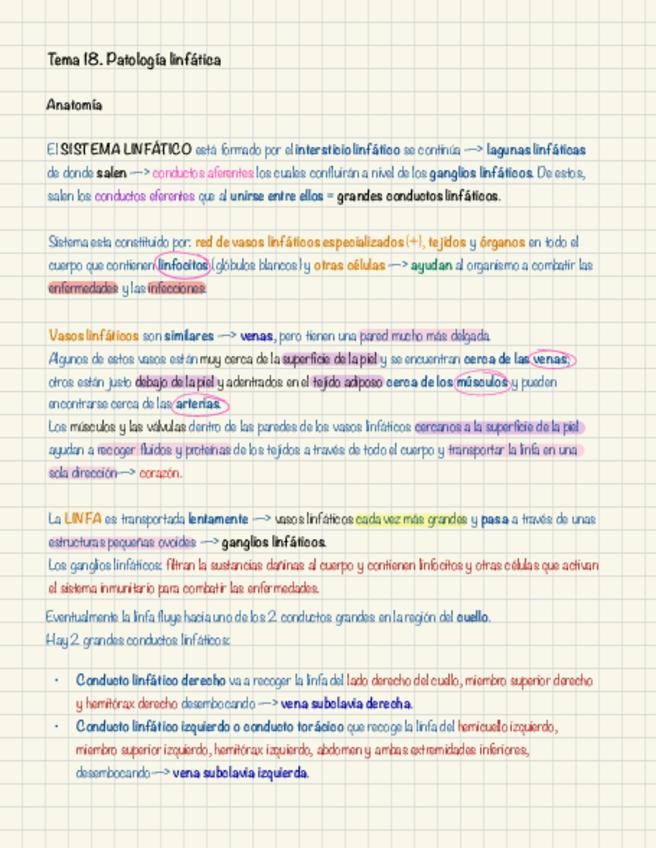 Tema 18. Patología linfática
Anatomía
El SISTEMA LINFÁTICO está formado por el intersticio linfático se continúa —> lagunas linfáticas
de donde salen —> conductos aferentes los cuales confluirán a nivel de los ganglios linfáticos. De estos,
salen los conductos eferentes que al unirse entre ellos = grandes conductos linfáticos.
Sistema esta constituido por: red de vasos linfáticos especializados (+), tejidos y órganos en todo el
cuerpo que contienen linfocitos (glóbulos blancos) y otras células —> ayudan al organismo a combatir las
enfermedades y las infecciones.
Vasos linfáticos son similares —> venas, pero tienen una pared mucho más delgada.
Algunos de estos vasos están muy cerca de la superficie de la piel y se encuentran cerca de las venas;
otros están justo debajo de la piel y adentrados en el tejido adiposo cerca de los músculos y pueden
encontrarse cerca de las arterias.
Los músculos y las válvulas dentro de las paredes de los vasos linfáticos cercanos a la superficie de la piel
ayudan a recoger fluidos y proteínas de los tejidos a través de todo el cuerpo y transportar la linfa en una
sola dirección —> corazón.
La LINFA es transportada lentamente —> vasos linfáticos cada vez más grandes y pasa a través de unas
estructuras pequeñas ovoides —> ganglios linfáticos.
Los ganglios linfáticos: filtran la sustancias dañinas al cuerpo y contienen linfocitos y otras células que activan
el sistema inmunitario para combatir las enfermedades.
Eventualmente la linfa fluye hacia uno de los 2 conductos grandes en la región del cuello.
Hay 2 grandes conductos linfáticos:
· Conducto linfático derecho va a recoger la linfa del lado derecho del cuello, miembro superior derecho
y hemitórax derecho desembocando —> vena subclavia derecha.
· Conducto linfático izquierdo o conducto torácico que recoge la linfa del hemicuello izquierdo,
miembro superior izquierdo, hemitórax izquierdo, abdomen y ambas extremidades inferiores,
desembocando —> vena subclavia izquierda.